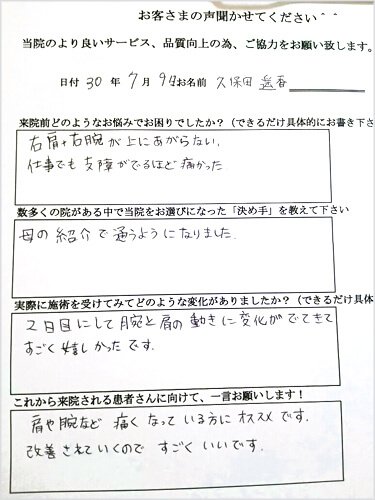 お客さまの声聞かせてください＾＾
当院のより良いサービス、品質向上の為、ご協力をお願い致します。
日付 30 年 7月 9日お名前 久保田 遥香
来院前どのようなお悩みでお困りでしたか？（できるだけ具体的にお書き下さ
右肩+右腕が上にあがらない。
仕事でも支障がでるほど痛かった
数多くの院がある中で当院をお選びになった「決め手」を教えて下さい
母の紹介で通うようになりました。
実際に施術を受けてみてどのような変化がありましたか？（できるだけ具体
2日目にして腕と肩の動きに変化がでてきて
すごく嬉しかったです。
これから来院される患者さんに向けて、一言お願いします！
肩や腕など痛くなっている方にオススメです。
改善されていくのですごくいいです。